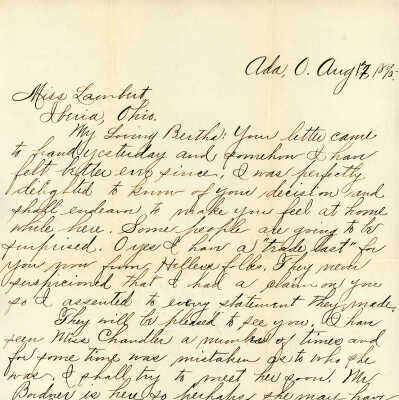 Ada, O. Aug 17, 1895.
Miss Lambert,
Iberia, Ohio.
My Loving Bertha: Your letter came
to hand yesterday and somehow I have
felt better ever since. I was perfectly
delighted to know of your decision and
shall endeavor to make you feel at home
while here. Some people are going to be
surprised. O yes I have a "trade last" for
you now from folks. They never
suspicioned that I had a claim on you
so I assented to every statement they made.
They will be pleased to see you. I have
seen Miss Chandler a number of times and
for some time was mistaken as to who she
was. I shall try to meet her soon. Mr
Bordner is here so perhaps she may have